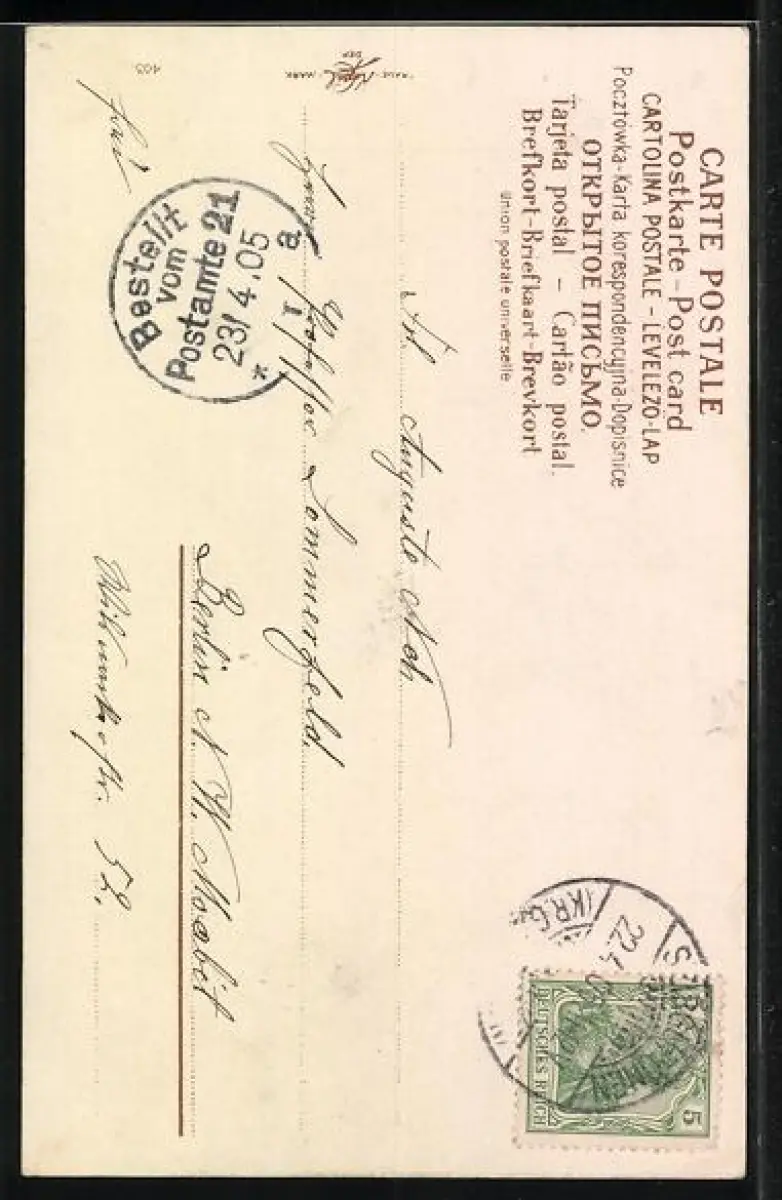 CARTE POSTALE
Postkarte - Post card
CARTOLINA POSTALE - LEVELEZÖ-LAP
Pocztówka-Karta korespondencyjna-Dopisnice
ОТКРЫТОЕ ПИСЬМО.
Tarjeta postal - Cartão postal.
Brefkort-Briefkaart-Brevkort
Union postale universelle
DEUTSCHES REICH
5
22.4.05
Frl. Auguste
Sommerfeld.
Berlin N.W. Moabit
52.
Bestellt
vom
Postamte 21
23/4.05
*
403